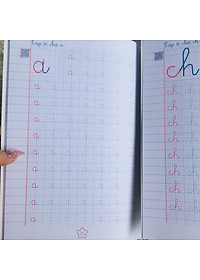 Tập tô chữ a
a a
a
a
a
a
a
a
a
a
a
a
Tập tô chữ ch
ch
ch
ch
ch
ch
ch
ch
ch
ch